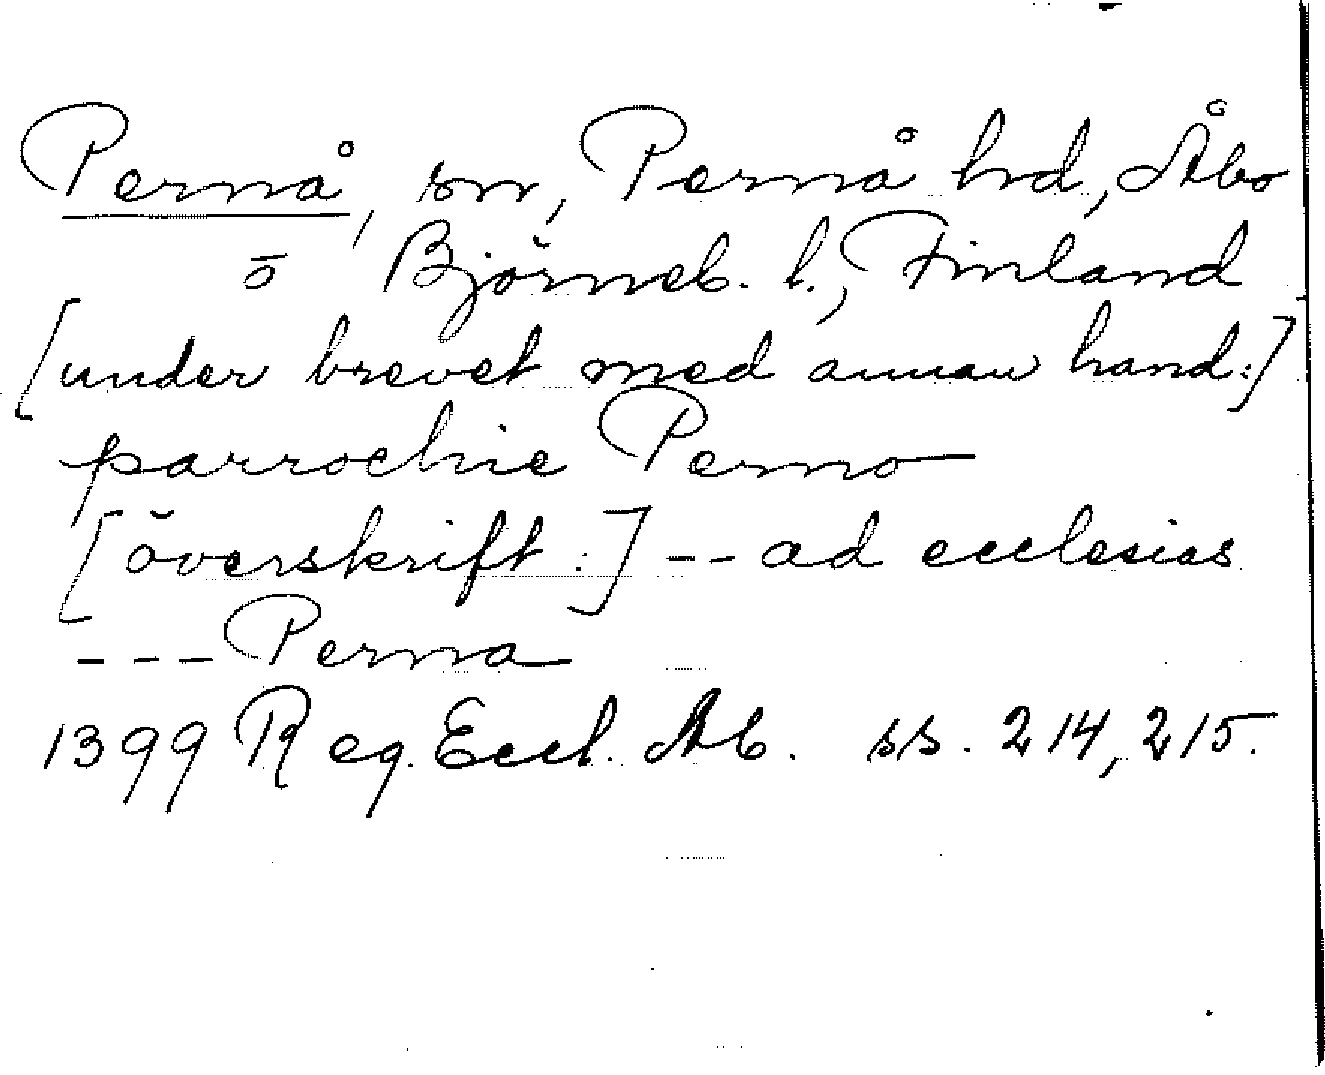 Pernå, sn, Pernå hd, Åbo
o Björneb. l., Finland
[under brevet med annan hand:]
parrochie Perno
[överskrift:] -- ad ecclesias
--- Perna
1399 Reg. Eccl. Ab. ss. 214, 215.